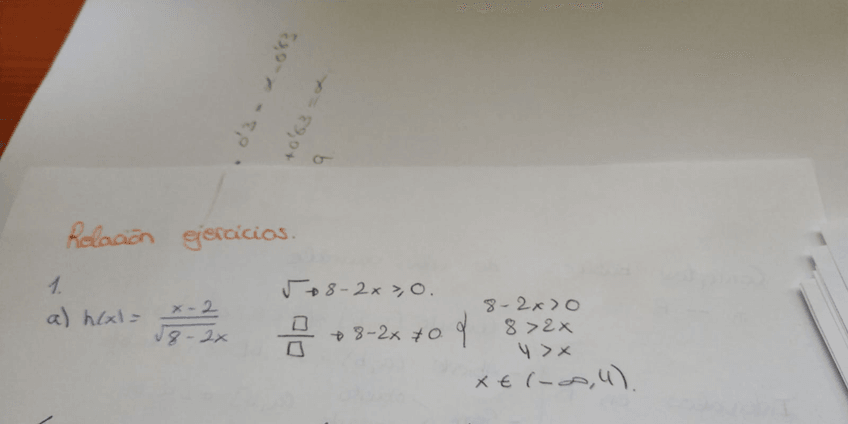 Relación ejercicios.
1.
a) h(x) = x-2 / √8-2x
√ → 8-2x ≥ 0.
□/□ → 8-2x ≠ 0
8-2x > 0
8 > 2x
4 > x
x ∈ (-∞, 4).